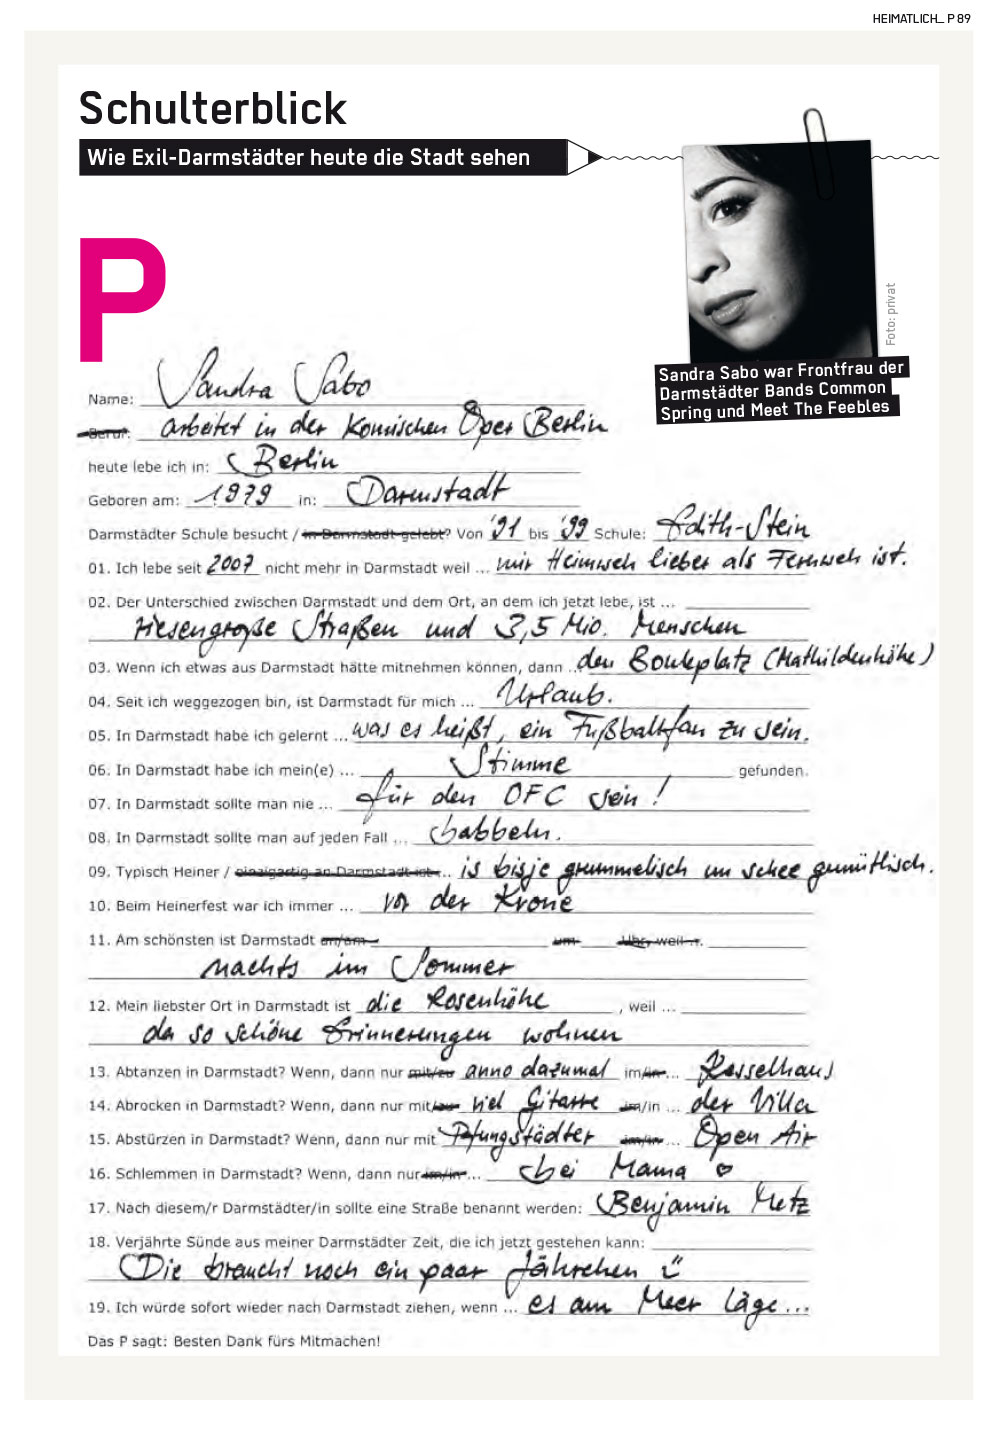 HEIMATLICH_ P 89
Schulterblick
Wie Exil-Darmstädter heute die Stadt sehen
P
Foto: privat
Sandra Sabo war Frontfrau der
Darmstädter Bands Common
Spring und Meet The Feebles
Name: Sandra Sabo
Beruf: arbeitet in der Komischen Oper Berlin
heute lebe ich in: Berlin
Geboren am: 1979 in: Darmstadt
Darmstädter Schule besucht / in Darmstadt gelebt? Von '91 bis '99 Schule: Edith-Stein
01. Ich lebe seit 2007 nicht mehr in Darmstadt weil ... mir Heimweh lieber als Fernweh ist.
02. Der Unterschied zwischen Darmstadt und dem Ort, an dem ich jetzt lebe, ist ...
riesengroße Straßen und 3,5 Mio. Menschen
03. Wenn ich etwas aus Darmstadt hätte mitnehmen können, dann ... den Bouleplatz (Mathildenhöhe)
04. Seit ich weggezogen bin, ist Darmstadt für mich ... Urlaub.
05. In Darmstadt habe ich gelernt ... was es heißt, ein Fußballfan zu sein.
06. In Darmstadt habe ich mein(e) ... Stimme gefunden.
07. In Darmstadt sollte man nie ... für den OFC sein!
08. In Darmstadt sollte man auf jeden Fall ... babbeln.
09. Typisch Heiner / einzigartig an Darmstadt ist ... is bisje grummelisch un schee gemütlisch.
10. Beim Heinerfest war ich immer ... vor der Krone
11. Am schönsten ist Darmstadt an/am um Uhr, weil ...
nachts im Sommer
12. Mein liebster Ort in Darmstadt ist die Rosenhöhe , weil ...
da so schöne Erinnerungen wohnen
13. Abtanzen in Darmstadt? Wenn, dann nur mit/zu anno dazumal im/in ... Kesselhaus
14. Abrocken in Darmstadt? Wenn, dann nur mit/zu viel Gitarre im/in ... der Villa
15. Abstürzen in Darmstadt? Wenn, dann nur mit Pfungstädter im/in ... Open Air
16. Schlemmen in Darmstadt? Wenn, dann nur im/in ... bei Mama ♡
17. Nach diesem/r Darmstädter/in sollte eine Straße benannt werden: Benjamin Metz
18. Verjährte Sünde aus meiner Darmstädter Zeit, die ich jetzt gestehen kann:
Die braucht noch ein paar Jährchen
19. Ich würde sofort wieder nach Darmstadt ziehen, wenn ... es am Meer läge...
Das P sagt: Besten Dank fürs Mitmachen!